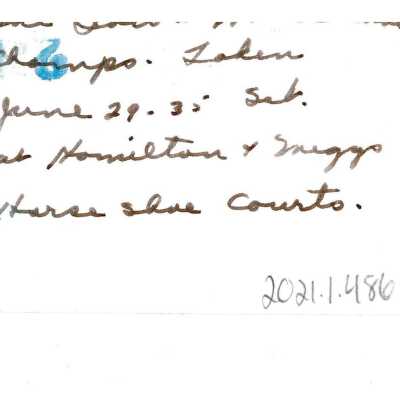 Champs. Taken
June 29-35 Sat.
at Hamilton &
Horse shoe Courts.
2021.1.486